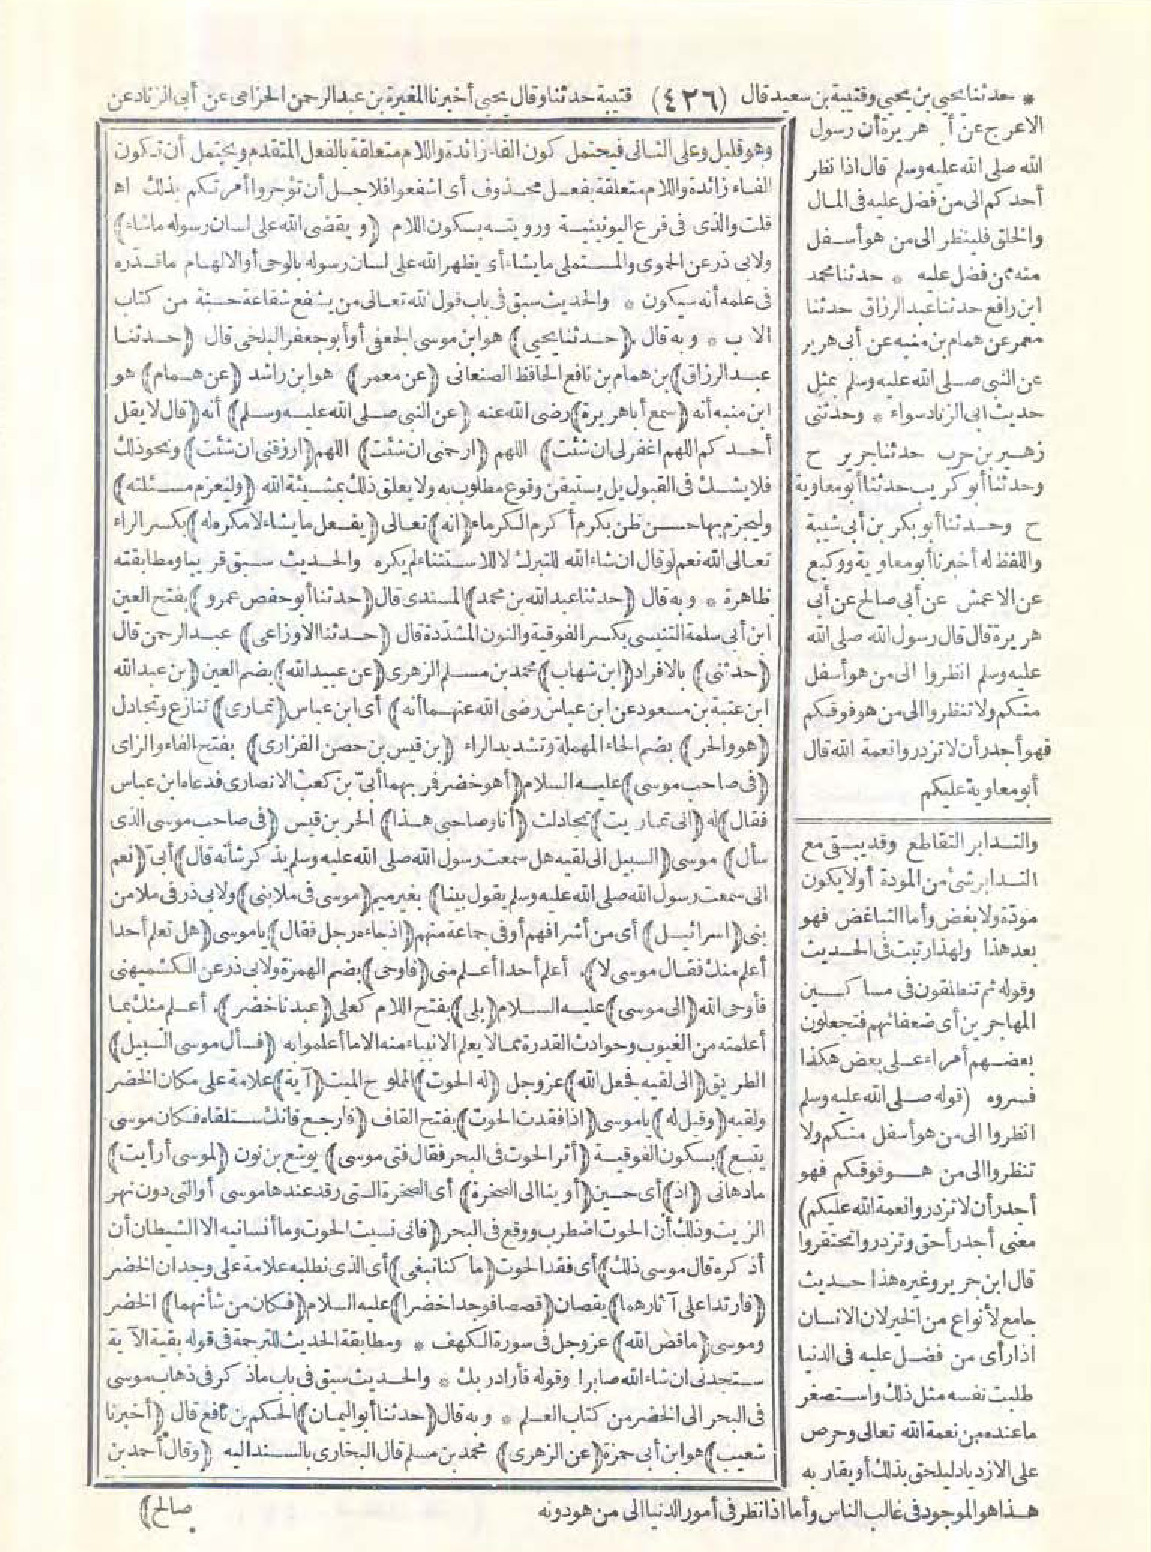 * حدثنا يحيى بن يحيى وقتيبة بن سعيد قال (٤٢٦) قتيبة حدثنا وقال يحيى أخبرنا المغيرة بن عبد الرحمن الحزامى عن أبى الزناد عن
الاعرج عن أبى هريرة أن رسول
الله صلى الله عليه وسلم قال اذا نظر
أحدكم الى من فضل عليه فى المال
والخلق فلينظر الى من هو أسفل
منه ممن فضل عليه * حدثنا محمد
ابن رافع حدثنا عبد الرزاق حدثنا
معمر عن همام بن منبه عن أبى هرير
عن النبى صلى الله عليه وسلم بمثل
حديث ابى الزناد سواء * وحدثنى
زهير بن حرب حدثنا جرير ح
وحدثنا أبو كريب حدثنا أبو معاوية
ح وحدثنا أبو بكر بن أبى شيبة
واللفظ له أخبرنا أبو معاوية ووكيع
عن الاعمش عن أبى صالح عن أبى
هريرة قال قال رسول الله صلى الله
عليه وسلم انظروا الى من هو أسفل
منكم ولا تنظروا الى من هو فوقكم
فهو أجدر أن لا تزدروا نعمة الله قال
أبو معاوية عليكم
والتدابر التقاطع وقد يبقى مع
التدابر شئ من المودة أو لا يكون
مودة ولا بغض وأما التباغض فهو
بعد هذا ولهذا رتبت فى الحديث
وقوله ثم تنطلقون فى مساكين
المهاجرين أى ضعفائهم فتجعلون
بعضهم أمراء على بعض هكذا
فسروه (قوله صلى الله عليه وسلم
انظروا الى من هو أسفل منكم ولا
تنظروا الى من هو فوقكم فهو
أجدر أن لا تزدروا نعمة الله عليكم)
معنى أجدر أحق وتزدروا تحتقروا
قال ابن جرير وغيره هذا حديث
جامع لأنواع من الخير لان الانسان
اذا رأى من فضل عليه فى الدنيا
طلبت نفسه مثل ذلك واستصغر
ما عنده من نعمة الله تعالى وحرص
على الازدياد ليلحق بذلك أو يقاربه
هذا هو الموجود فى غالب الناس وأما اذا نظر فى أمور الدنيا الى من هو دونه
وهو قليل وعلى الثانى فيحتمل كون الفاء زائدة واللام متعلقة بالفعل المتقدم ويحتمل أن تكون
الفاء زائدة واللام متعلقة بفعل محذوف أى اشفعوا فلاجل أن تؤجروا أمرتكم بذلك اه
قلت والذى فى فرع اليونينية ورويته بسكون اللام (ويقضى الله على لسان رسوله ما شاء)
ولابى ذر عن الحموى والمستملى ما يشاء أى يظهر الله على لسان رسوله بالوحى أو الالهام ما قدره
فى علمه أنه سيكون * والحديث سبق فى باب قول الله تعالى من يشفع شفاعة حسنة من كتاب
الادب * وبه قال (حدثنا يحيى) هو ابن موسى الجعفى أو أبو جعفر البلخى قال (حدثنا
عبد الرزاق) بن همام بن نافع الحافظ الصنعانى (عن معمر) هو ابن راشد (عن همام) هو
ابن منبه أنه (سمع أبا هريرة) رضى الله عنه (عن النبى صلى الله عليه وسلم) أنه (قال لا يقل
أحدكم اللهم اغفر لى ان شئت) اللهم (ارحمنى ان شئت) اللهم (ارزقنى ان شئت) ونحو ذلك
فلا يشك فى القبول بل يستيقن وقوع مطلوبه ولا يعلق ذلك بمشيئة الله (وليعزم مسئلته)
وليجزم بها حسن ظن بكرم أكرم الكرماء (انه) تعالى (يفعل ما يشاء لا مكره له) بكسر الراء
تعالى الله نعم لو قال ان شاء الله للتبرك لا للاستثناء لم يكره والحديث سبق قريبا ومطابقته
ظاهرة * وبه قال (حدثنا عبد الله بن محمد) المسندى قال (حدثنا أبو حفص عمرو) بفتح العين
ابن أبى سلمة التنيسى بكسر الفوقية والنون المشددة قال (حدثنا الاوزاعى) عبد الرحمن قال
(حدثنى) بالافراد (ابن شهاب) محمد بن مسلم الزهرى (عن عبيد الله) بضم العين (بن عبد الله
ابن عتبة بن مسعود عن ابن عباس رضى الله عنهما أنه) أى ابن عباس (تمارى) تنازع وتجادل
(هو والحر) بضم الحاء المهملة وتشديد الراء (بن قيس بن حصن الفزارى) بفتح الفاء والزاى
(فى صاحب موسى) عليه السلام (أهو خضر فمر بهما أبىّ بن كعب الانصارى فدعاه ابن عباس
فقال) له (انى تماريت) تجادلت (أنا وصاحبى هذا) الحر بن قيس (فى صاحب موسى الذى
سأل) موسى (السبيل الى لقيه هل سمعت رسول الله صلى الله عليه وسلم يذكر شأنه قال) أبىّ (نعم
انى سمعت رسول الله صلى الله عليه وسلم يقول بينا) بغير ميم (موسى فى ملا بنى) ولابى ذر فى ملا من
بنى (اسرائيل) أى من أشرافهم أو فى جماعة منهم (اذ جاءه رجل فقال) يا موسى (هل تعلم أحدا
أعلم منك فقال موسى لا) أعلم أحدا أعلم منى (فأوحى) بضم الهمزة ولابى ذر عن الكشميهنى
فأوحى الله (الى موسى) عليه السلام (بلى) بفتح اللام كعلى (عبدنا خضر) أعلم منك بما
أعلمته من الغيوب وحوادث القدرة مما لا يعلم الانبياء منه الا ما أعلموا به (فسأل موسى السبيل)
الطريق (الى لقيه فجعل الله) عز وجل (له الحوت) المملوح الميت (آية) علامة على مكان الخضر
ولقيه (وقيل له) يا موسى (اذا فقدت الحوت) بفتح القاف (فارجع فانك ستلقاه فكان موسى
يتبع) بسكون الفوقية (أثر الحوت فى البحر فقال فتى موسى) يوشع بن نون (لموسى أرأيت)
ما دهانى (اذ) أى حين (أوينا الى الصخرة) أى الصخرة التى رقد عندها موسى أو التى دون نهر
الزيت وذلك أن الحوت اضطرب ووقع فى البحر (فانى نسيت الحوت وما أنسانيه الا الشيطان أن
أذكره قال موسى ذلك) أى فقد الحوت (ما كنا نبغى) أى الذى نطلبه علامة على وجدان الخضر
(فارتدا على آثارهما) يقصان (قصصا فوجدا خضرا) عليه السلام (فكان من شأنهما) الخضر
وموسى (ما قص الله) عز وجل فى سورة الكهف * ومطابقة الحديث للترجمة فى قوله بقية الآية
ستجدنى ان شاء الله صابرا وقوله فأراد ربك * والحديث سبق فى باب ما ذكر فى ذهاب موسى
فى البحر الى الخضر من كتاب العلم * وبه قال (حدثنا أبو اليمان) الحكم بن نافع قال (أخبرنا
شعيب) هو ابن أبى حمزة (عن الزهرى) محمد بن مسلم قال البخارى بالسند اليه (وقال أحمد بن
صالح)